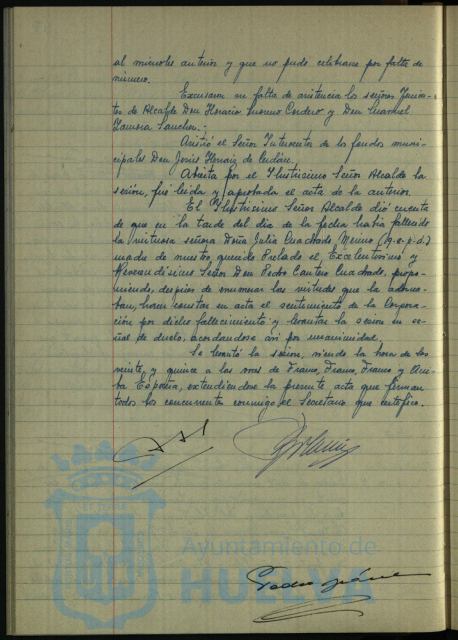 al miércoles anterior y que no pudo celebrarse por falta de
número.
Excusaron su falta de asistencia los señores Tenien-
tes de Alcalde Don Horacio Cordero y Don Manuel
Zamora Sánchez.-
Asistió el Señor Interventor de los fondos muni-
cipales Don Jesús de Cudán.
Abierta por el Ilustrísimo Señor Alcalde la
sesión, fué leída y aprobada el acta de la anterior.
El Ilustrísimo Señor Alcalde dió cuenta
de que en la tarde del día de la fecha había fallecido
la virtuosa señora Doña Julia Cuadrado Merino (q.e.p.d.)
madre de nuestro querido Prelado el Excelentísimo y
Reverendísimo Señor Don Pedro Cantero Cuadrado, propo-
niendo, después de enumerar las virtudes que la adorna-
ban, hacer constar en acta el sentimiento de la Corpora-
ción por dicho fallecimiento y levantar la sesión en se-
ñal de duelo, acordándose así por unanimidad.
Se levantó la sesión, siendo la hora de las
veinte y quince a las voces de Franco, Franco, Franco y Arri-
ba España, extendiéndose la presente acta que firman
todos los concurrentes conmigo el Secretario que certifico.
Ayuntamiento de
HUELVA
Pedro